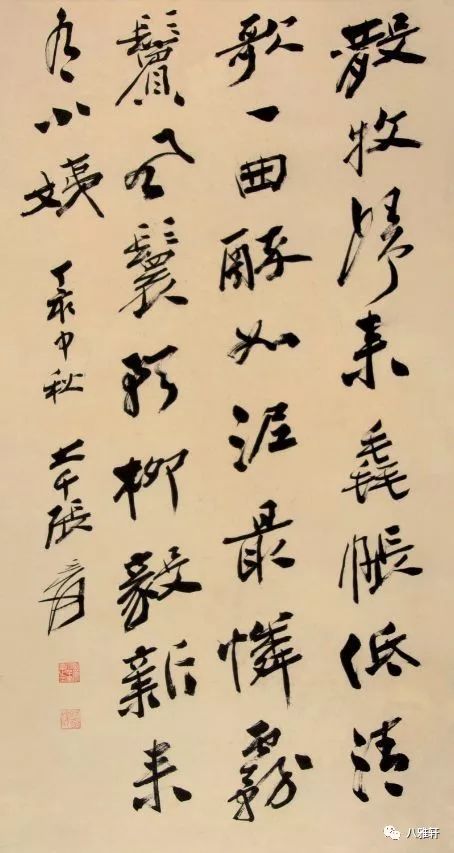 散牧歸來毳帳低清
歌一曲醉如泥最憐霧
鬢風鬟影柳毅新來
有小姨
丁亥中秋 大千張爰
八雅轩